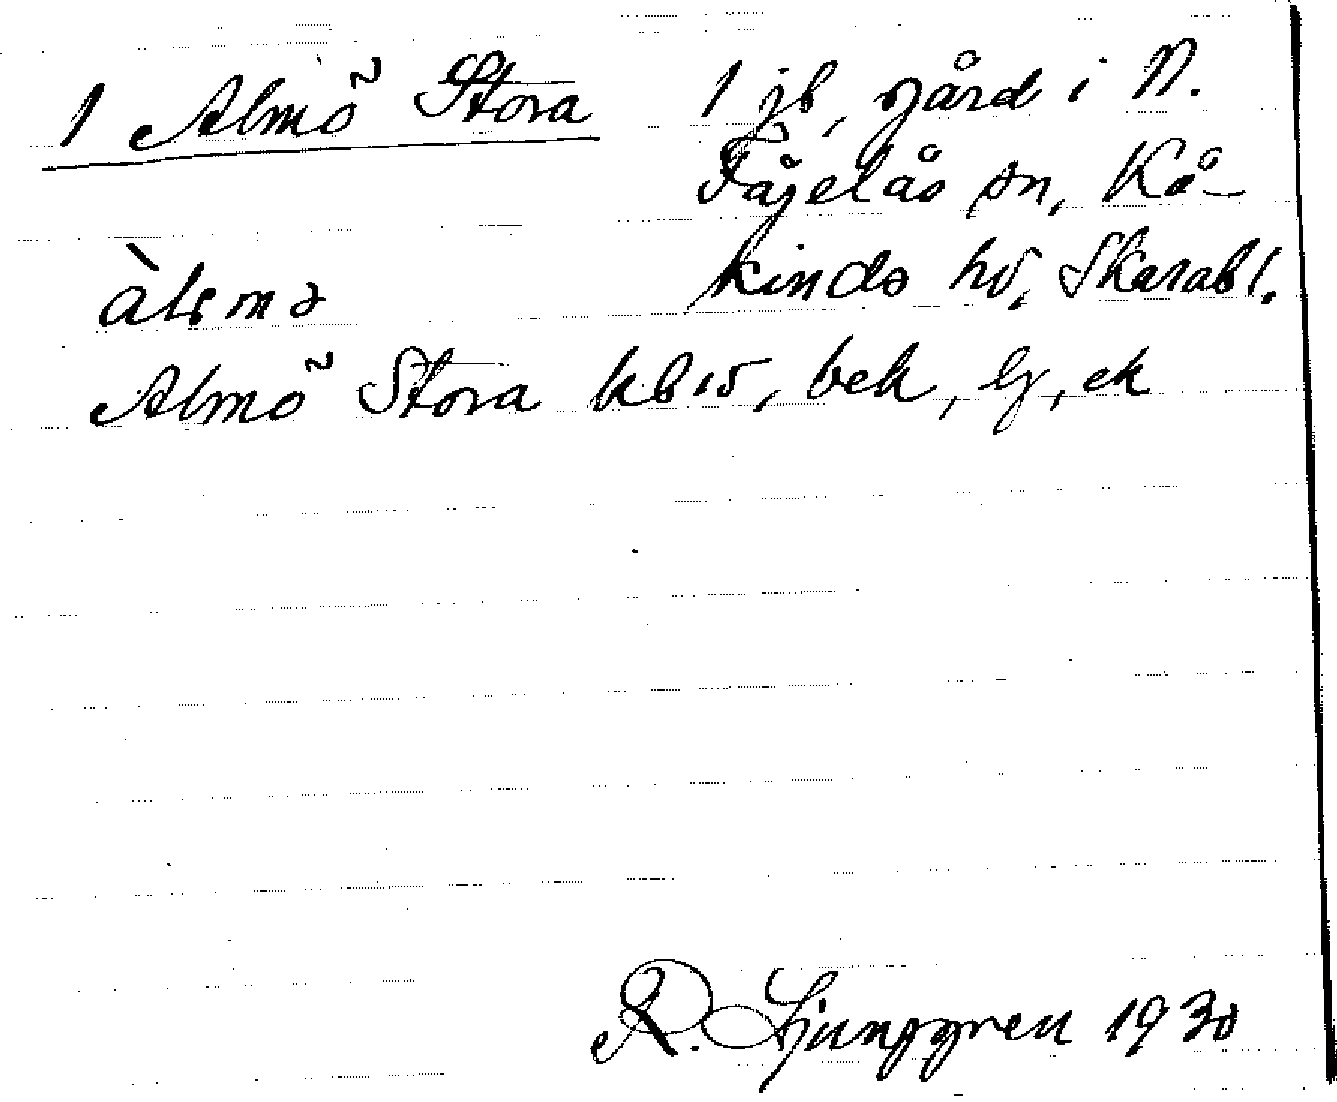 1 Almö Stora
1 jb, gård i N.
Fågelås sn, Kå-
kinds hd, Skarabl.
àlmə
Almö Stora kb 15, bek, lg, ek
R. Ljunggren 1930